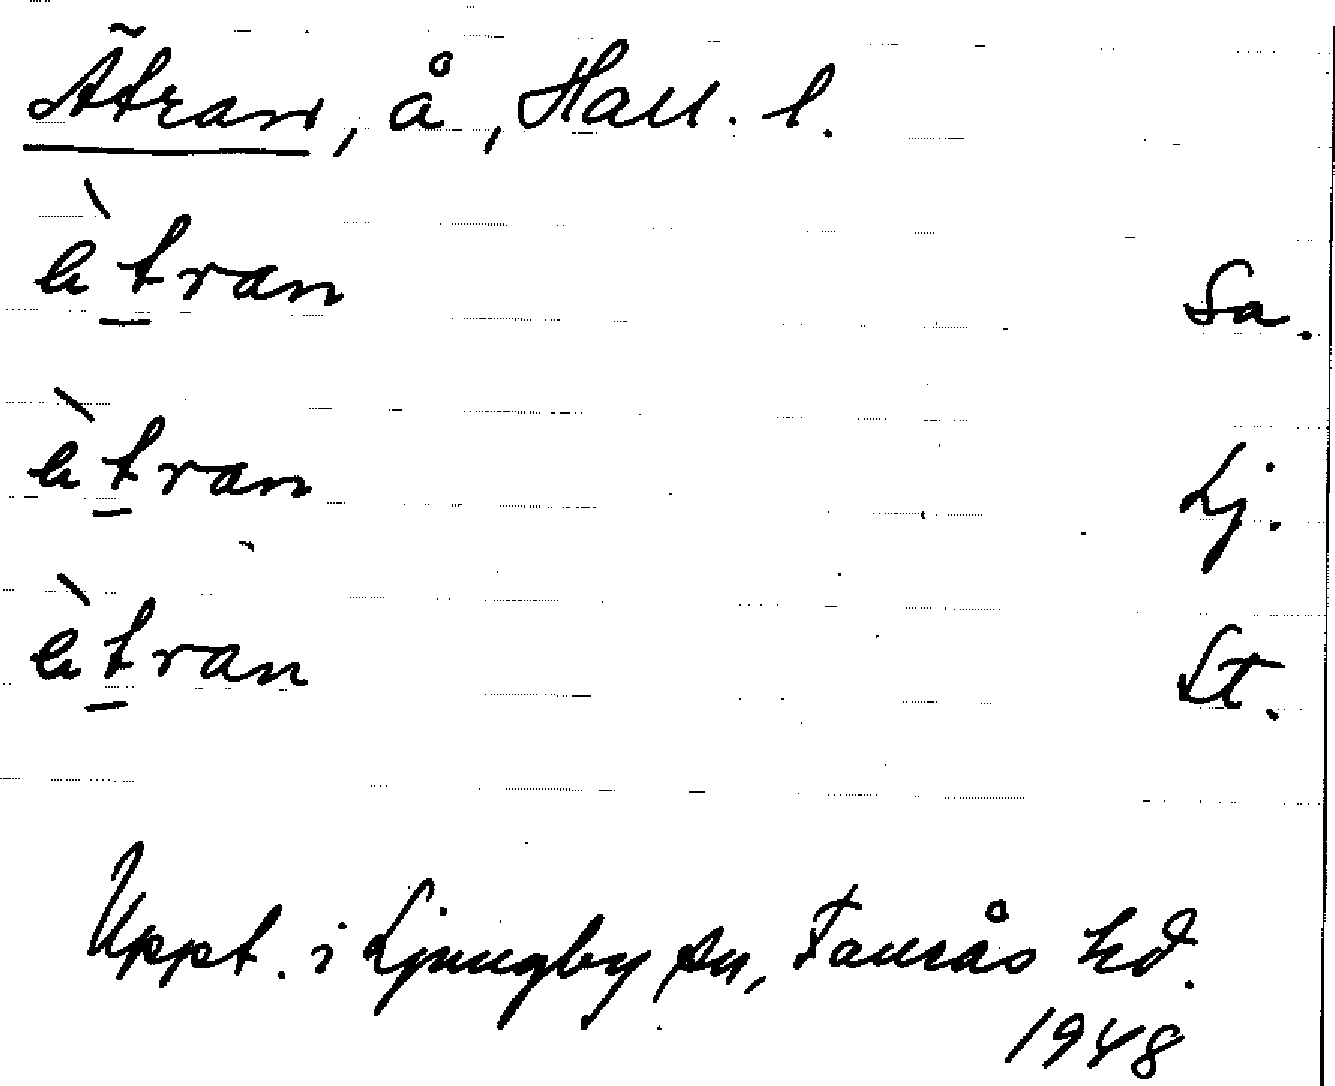 Ätran, å, Hall. l.
ètran Sa.
ètran Lj.
ètran St.
Uppt. i Ljungby sn, Faurås hd.
1948